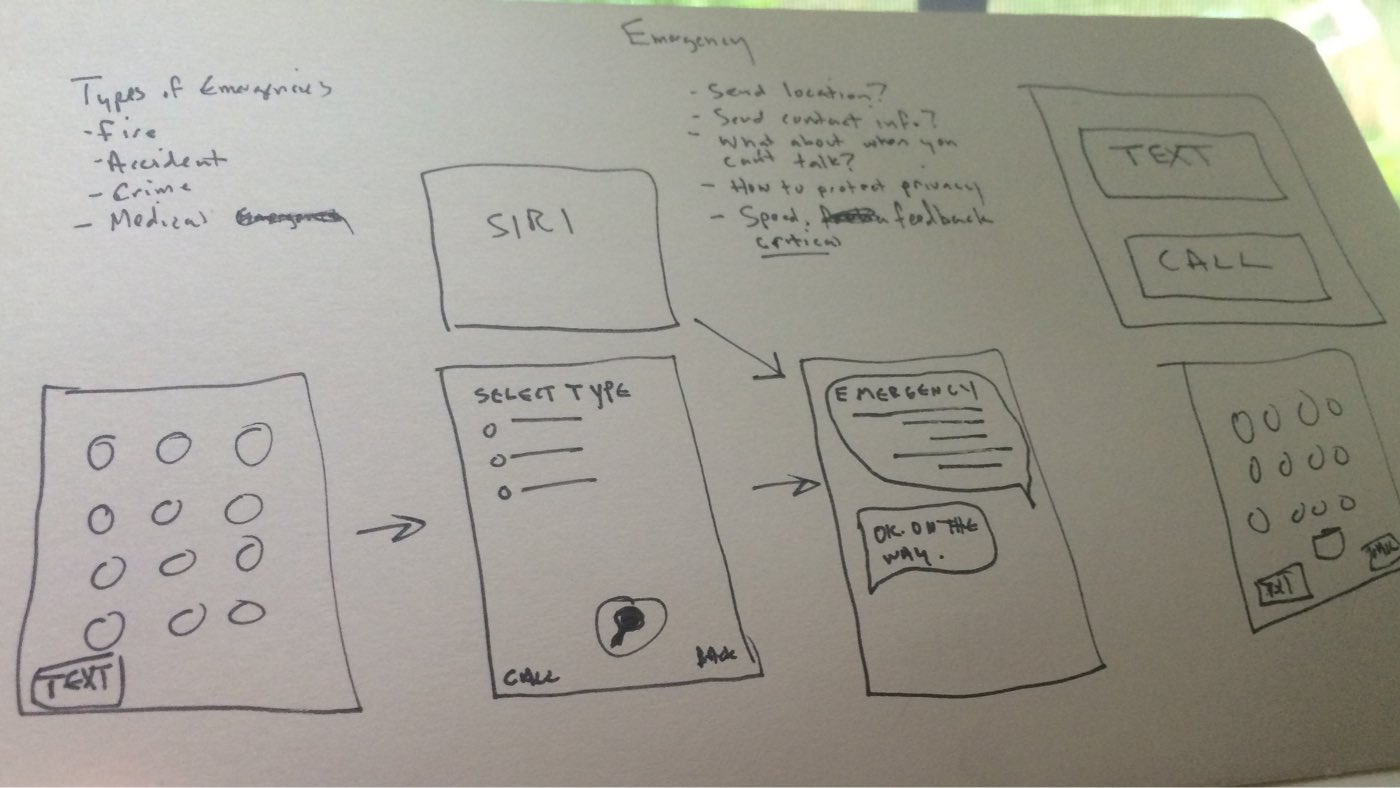 Emergency
Types of Emergencies
- Fire
- Accident
- Crime
- Medical
- Send location?
- Send contact info.?
- What about when you
can't talk?
- How to protect privacy
- Speed, feedback
critical
SIRI
TEXT
CALL
TEXT
SELECT TYPE
CALL
BACK
EMERGENCY
OK. ON THE
WAY.
TEXT